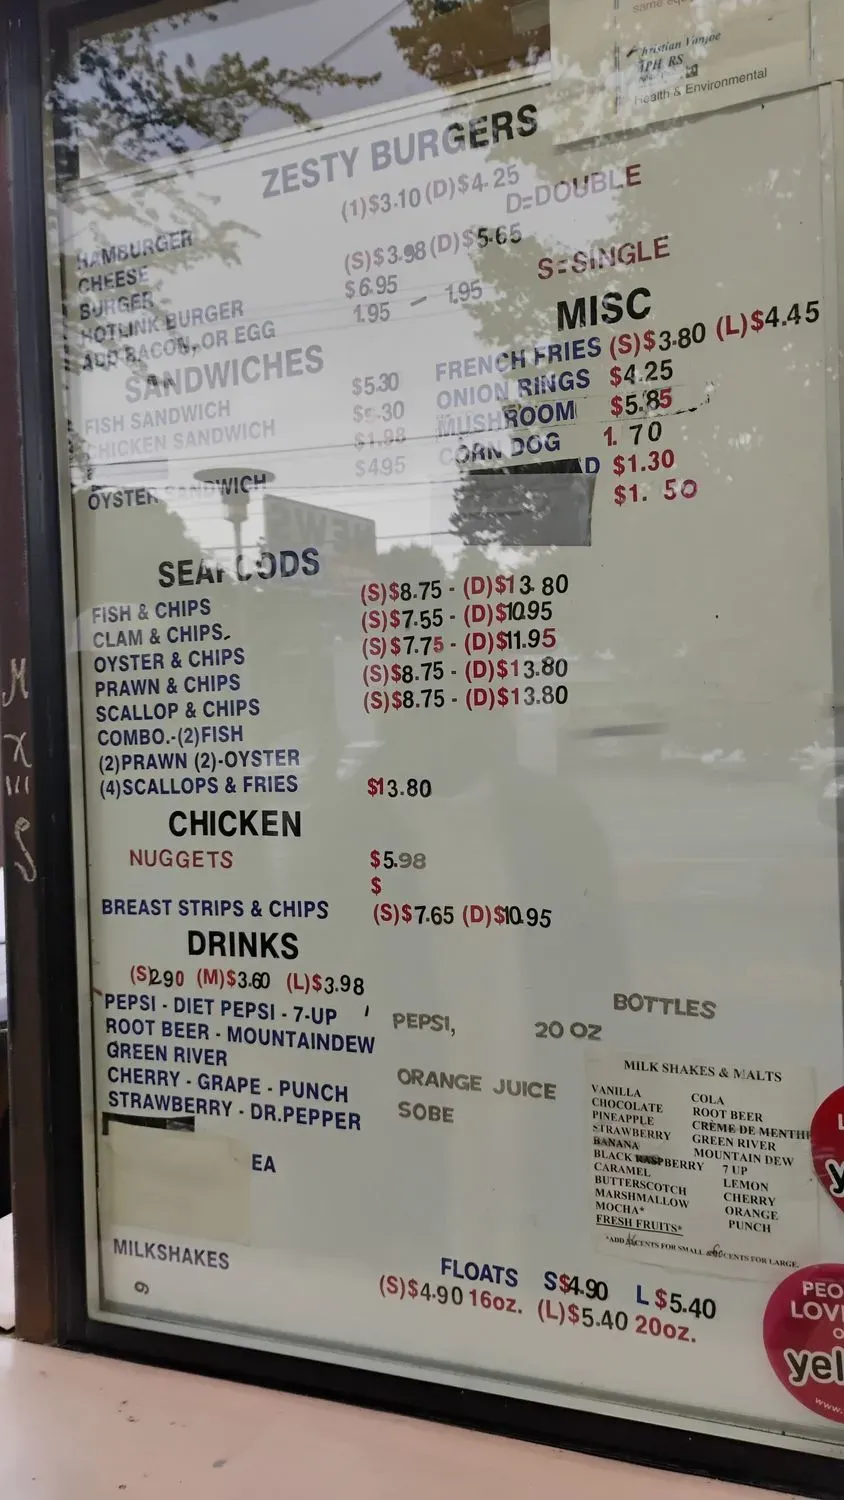 same
Christian Vanjoe
MPH, RS
Health & Environmental
ZESTY BURGERS
(1)$3.10 (D)$4.25
D=DOUBLE
HAMBURGER
CHEESE
BURGER
(S)$3.98 (D)$5.65
S=SINGLE
HOTLINK BURGER $6.95
ADD BACON, OR EGG 1.95 - 1.95
SANDWICHES
FISH SANDWICH $5.30
CHICKEN SANDWICH $5.30
$1.98
OYSTER SANDWICH $4.95
MISC
FRENCH FRIES (S)$3.80 (L)$4.45
ONION RINGS $4.25
MUSHROOM $5.85
CORN DOG 1.70
D $1.30
$1.50
SEAFOODS
FISH & CHIPS (S)$8.75 - (D)$13.80
CLAM & CHIPS. (S)$7.55 - (D)$10.95
OYSTER & CHIPS (S)$7.75 - (D)$11.95
PRAWN & CHIPS (S)$8.75 - (D)$13.80
SCALLOP & CHIPS (S)$8.75 - (D)$13.80
COMBO.-(2)FISH
(2)PRAWN (2)-OYSTER
(4)SCALLOPS & FRIES $13.80
CHICKEN
NUGGETS $5.98
$
BREAST STRIPS & CHIPS (S)$7.65 (D)$10.95
DRINKS
(S)2.90 (M)$3.60 (L)$3.98
PEPSI - DIET PEPSI - 7-UP
ROOT BEER - MOUNTAINDEW
GREEN RIVER
CHERRY - GRAPE - PUNCH
STRAWBERRY - DR.PEPPER
EA
BOTTLES
PEPSI, 20 OZ
ORANGE JUICE
SOBE
MILK SHAKES & MALTS
VANILLA
CHOCOLATE
PINEAPPLE
STRAWBERRY
BANANA
BLACK RASPBERRY
CARAMEL
BUTTERSCOTCH
MARSHMALLOW
MOCHA*
FRESH FRUITS*
COLA
ROOT BEER
CRÈME DE MENTHE
GREEN RIVER
MOUNTAIN DEW
7 UP
LEMON
CHERRY
ORANGE
PUNCH
*ADD CENTS FOR SMALL & 60 CENTS FOR LARGE.
MILKSHAKES
FLOATS S$4.90 L$5.40
(S)$4.90 16oz. (L)$5.40 20oz.
PEO
LOV
yel
www.